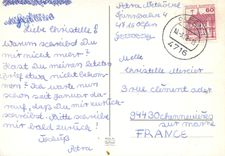 Liebe Christelle!
Warum schreibst Du
mir nicht mehr?
Hast Du meinen letzten
Brief etwa nicht bekom-
men? Ich warte nun
schon seit Januar da-
rauf, daß Du mir zurück-
schreibst. Bitte schreibe
mir bald zurück!
Tschüß
Petra
Petra
4716 Olfen
Germany
4716
60
Melle
Christelle Mercier
3 rue Clément Ader
94430 Chennevières
sur marne
FRANCE